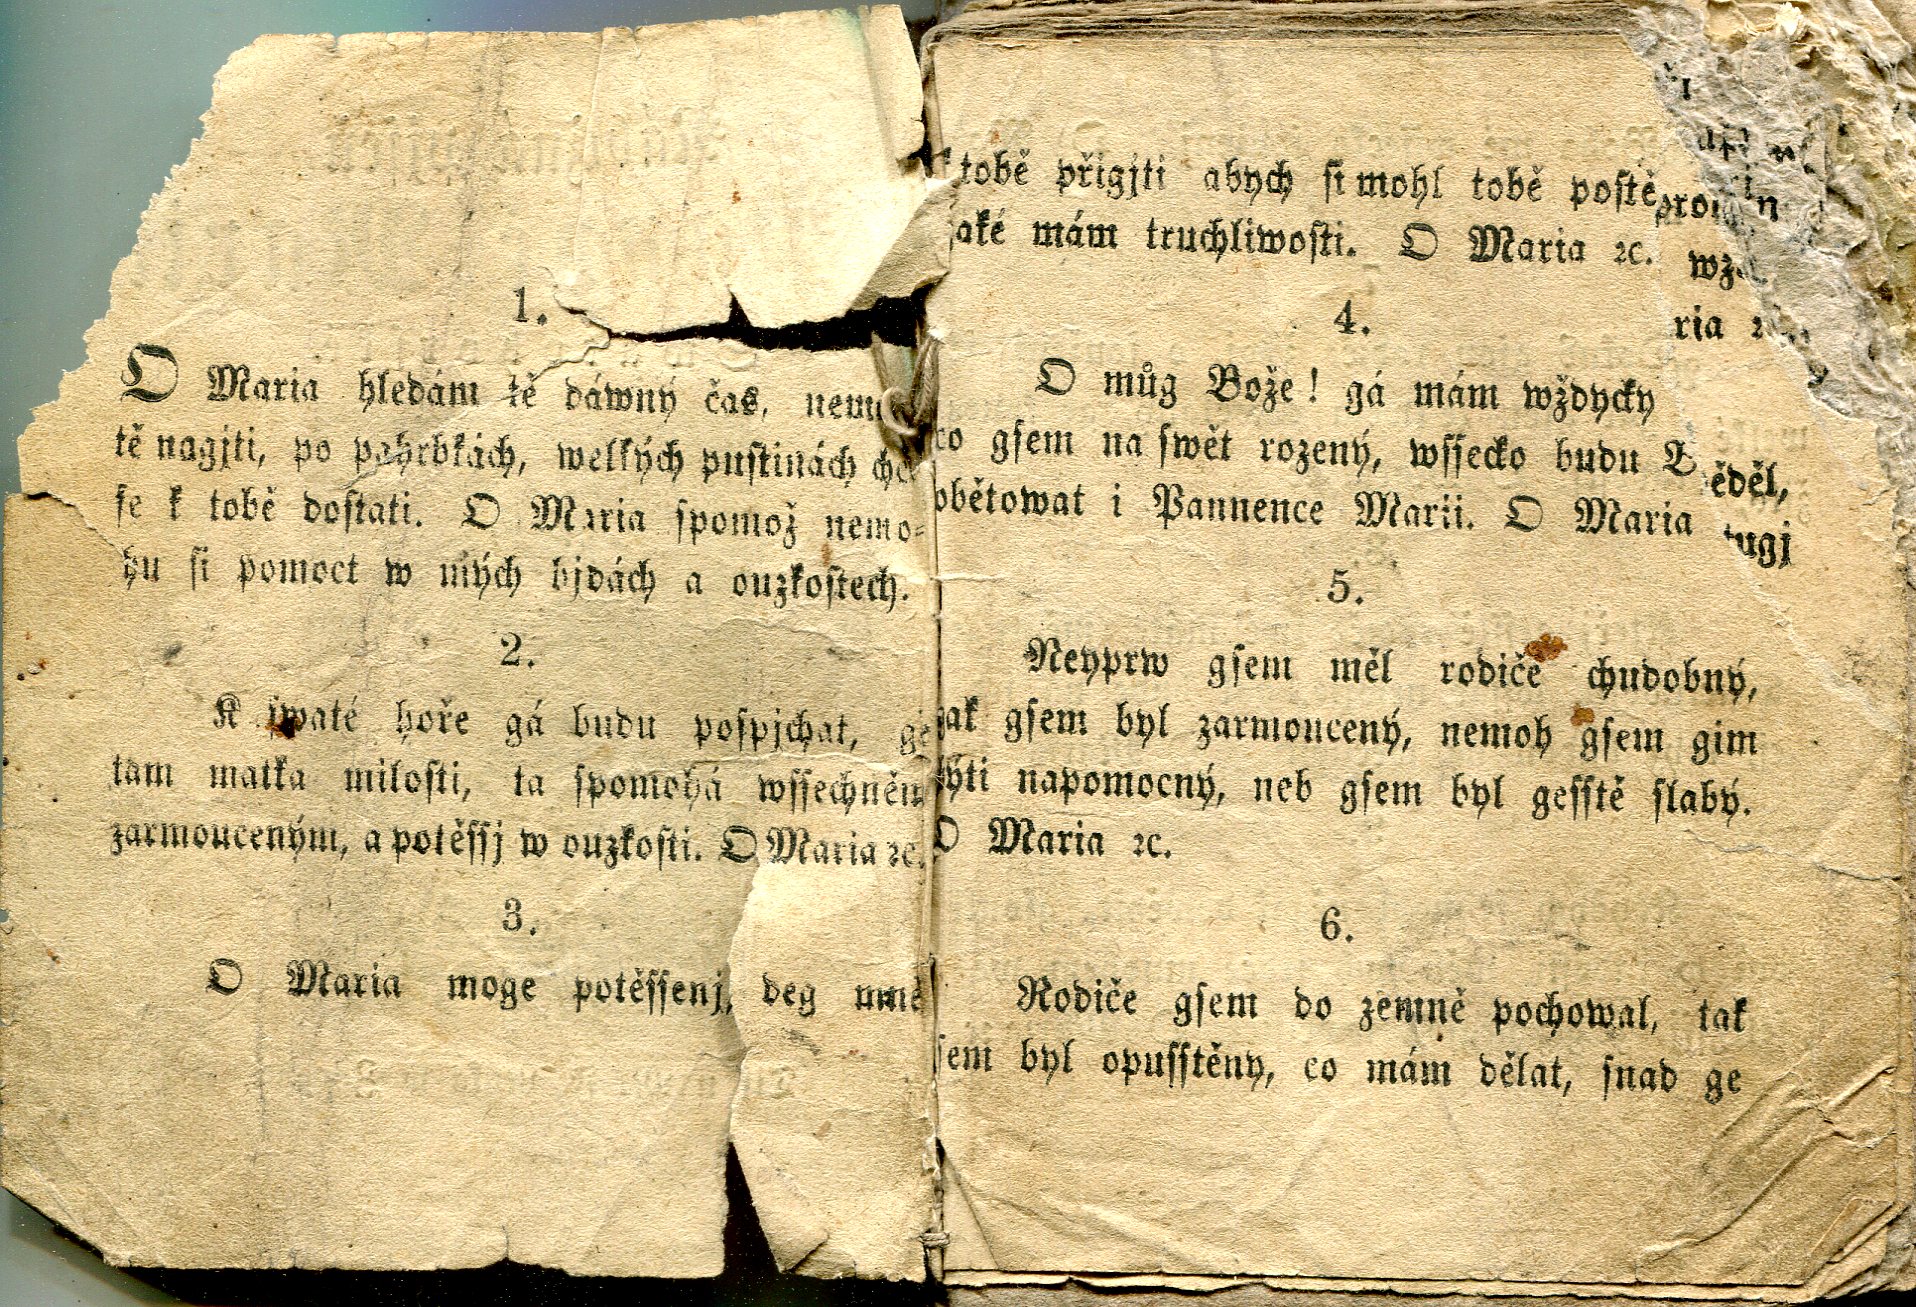 1.
O Maria hledám tě dáwný čas,
tě nagjti, po pahrbkách, welkých pustinách
se k tobě dostati. O Maria spomož nemo-
hu si pomoct w mých bjdách a ouzkostech.
2.
K swaté hoře gá budu pospjchat, ge
tam matka milosti, ta spomohá wssechněm
zarmouceným, a potěssj w ouzkosti. O Maria ꝛc.
3.
O Maria moge potěssenj, deg mně
tobě přigjti abych si mohl tobě postě
aké mám truchliwosti. O Maria ꝛc.
4.
O můg Bože! gá mám wždycky
co gsem na swět rozený, wssecko budu
obětowat i Pannence Marii. O Maria
5.
Neyprw gsem měl rodiče chudobný,
gak gsem byl zarmoucený, nemoh gsem gim
býti napomocný, neb gsem byl gesstě slabý.
O Maria ꝛc.
6.
Rodiče gsem do zemně pochowal, tak
sem byl opusstěny, co mám dělat, snad ge
ria
ěděl,
tugj